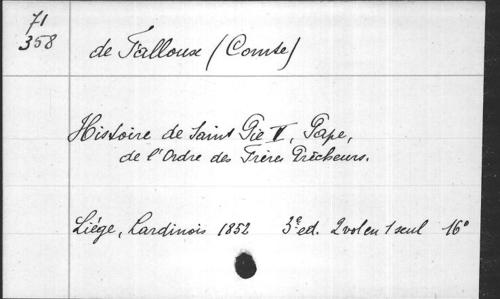 71
358
de Falloux (Comte)
Histoire de Saint Pie V, Pape,
de l'Ordre des Frères Prêcheurs.
Liége, Lardinois 1852 3e ed. 2 vol en 1 seul 16°